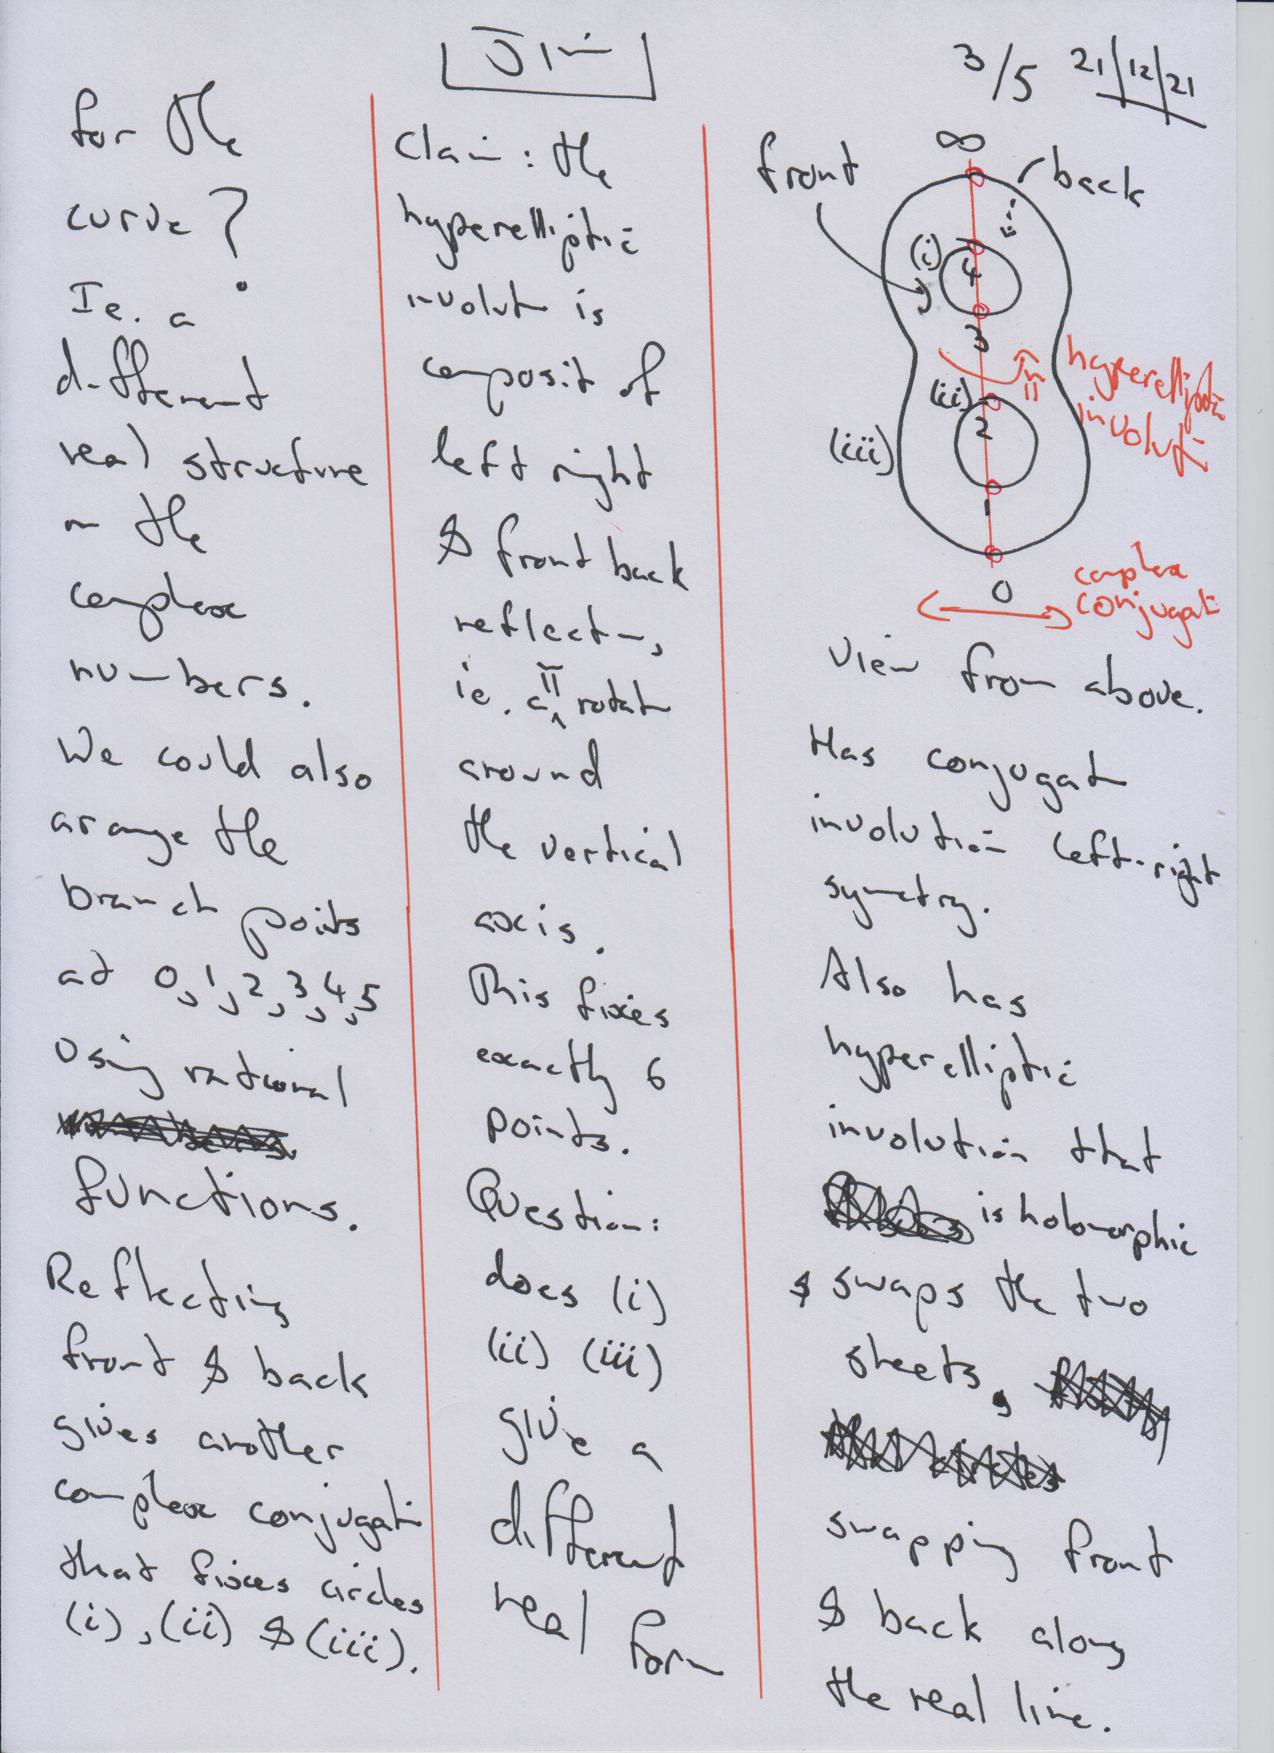 3/5 21/12/21
for the
curve?
Ie. a
different
real structure
on the
complex
numbers.
We could also
arange the
branch points
at 0, 1, 2, 3, 4, 5
using rational
functions.
Reflecting
front & back
gives another
complex conjugati
that fixes circles
(i), (ii) & (iii).
Claim: the
hyperelliptic
involut is
composit of
left right
& front back
reflection,
ie. a π rotat
around
the vertical
axis.
This fixes
exactly 6
points.
Question:
does (i)
(ii) (iii)
give a
different
real form
∞
front
back
(i)
4
3
π
hyperelliptic
involuti
(ii)
2
(iii)
1
0
complex
conjugati
View from above.
Has conjugat
involution left-right
symetry.
Also has
hyperelliptic
involution that
is holomorphic
& swaps the two
sheets,
swapping front
& back along
the real line.